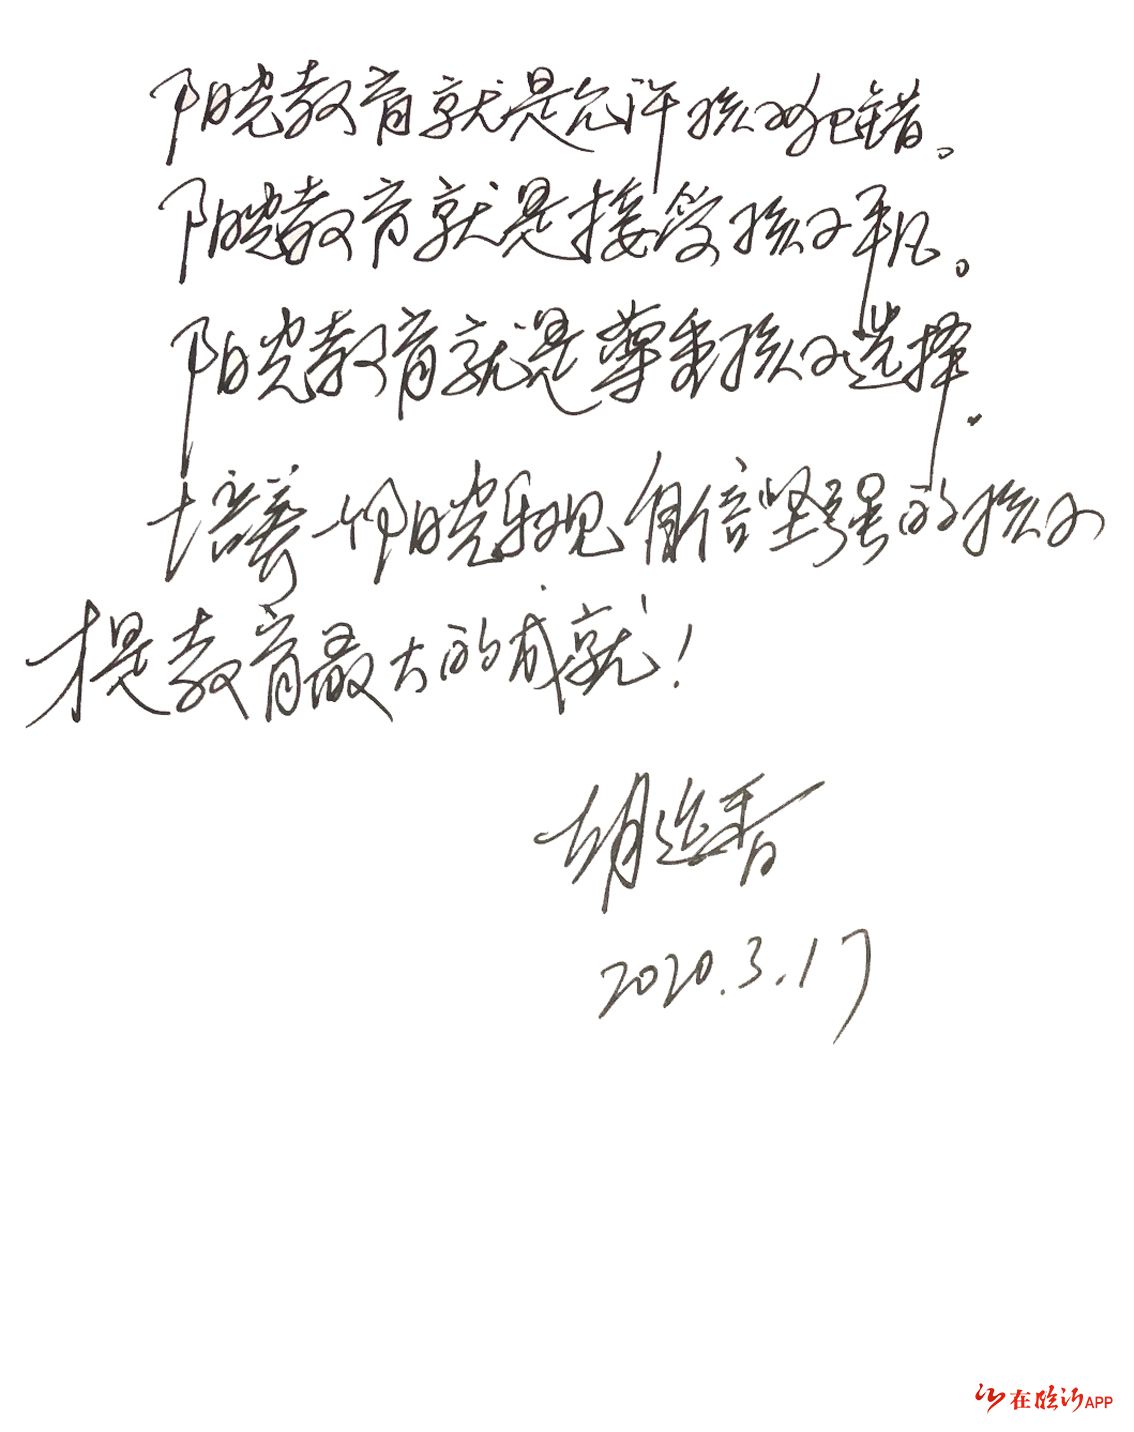 阳光教育就是允许孩子犯错。
阳光教育就是接受孩子平凡。
阳光教育就是尊重孩子选择。
培养一个阳光乐观自信坚强的孩子
才是教育最大的成就！
胡延香
2020.3.17
在临沂APP